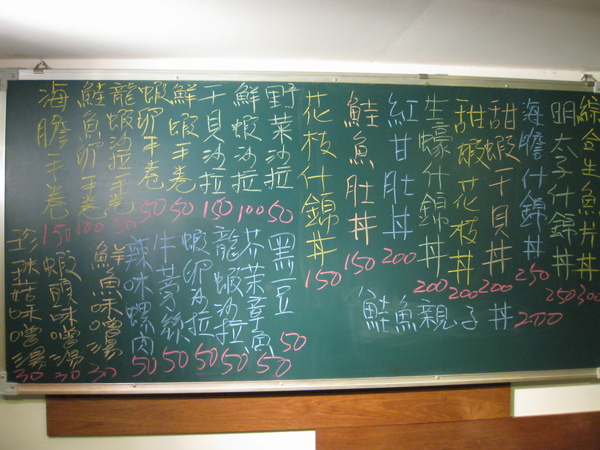 綜合生魚片丼 300
明太子什錦丼 250
海膽什錦丼 250
甜蝦干貝丼 200
甜蝦花枝丼 200
生蠔什錦丼 200
紅甘肚丼 200
鮭魚肚丼 150
花枝什錦丼 150
鮭魚親子丼 200
野菜沙拉 50
鮮蝦沙拉 100
干貝沙拉 150
鮮蝦手卷 50
蝦卵手卷 50
龍蝦沙拉手卷 50
鮭魚卵手卷 100
海膽手卷 150
黑豆 50
芥茉章魚 50
龍蝦沙拉 50
蝦卵沙拉 50
牛蒡絲 50
辣味螺肉 50
鮮魚味噌湯 30
蝦頭味噌湯 30
珍珠菇味噌湯 30